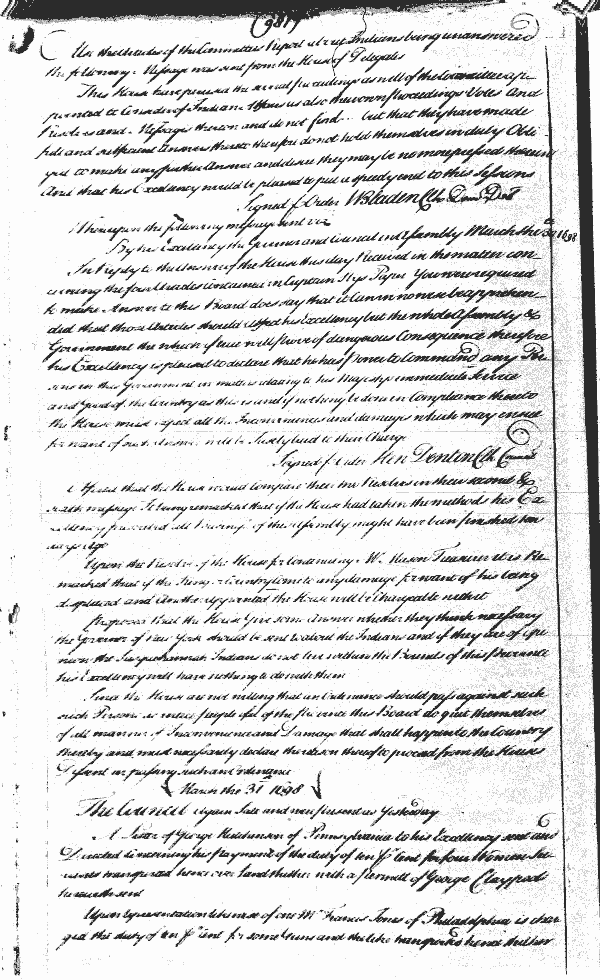 (981)
the following Message was sent from the House of Delegates
This House have perused the severall proceedings as well of the Committee ap-
pointed to Consider of Indian Affairs as also their own proceedings Votes And
Resolves and Messages thereon and do not find but that they have made
full and sufficient Answers thereto therefore do not hold themselves in duty Obli-
ged to make any further Answer and desire they may be no more pressed therein
And that his Excellency would be pleased to put a speedy end to this Sessions
Signed p Order W Bladen Clk
Whereupon the following message sent viz
By his Excellency the Governor and Council in Assembly March the 30th 1698
In Reply to the Answer of the House this day Received in the matter con-
cerning the four Articles contained in Captain Paper You were required
to make Answer to this Board does say that it can in no wise be apprehen-
ded that those Articles should his Excellency but the whole Assembly &
Government the which if true will prove of dangerous Consequence therefore
his Excellency is pleased to declare that he has power to Command any Per-
sons in this Government in matters relating to his Majestys immediate Service
and good of the Country as this is and if nothing be done in Compliance thereto
the House must expect all the Inconveniences and damages which may ensue
for want of such will be Justly laid to their Charge
Signed p Order Hen Denton Clk Council
that the House would compare their Resolves in their second
message It being remarked that if the House had taken the methods his Ex-
cellency of this Assembly might have been finished ten
days ago
Upon the Resolve of the House for Continuing Mr Mason Treasurer it is Re-
marked that if the King or Country come to any damage for want of his being
displaced and Another appointed the House will be Chargeable with it
Proposed that the House give some Answer whether they think necessary
the Governor of New York should be sent to about the Indians and if they are of Opi-
nion the Susquehannah Indians do not live within the Bounds of this Province
his Excellency will have nothing to do with them
Since the House are not willing that an Ordinance should pass against such
such Persons as people out of the Province this Board do quit themselves
of all manner of Inconvenience and Damage that shall happen to the Country
thereby and must necessarily declare the reason thereof to proceed from the Houses
Dissent in passing such an Ordinance
March the 31st 1698
The Council again Sate and were present as Yesterday
A Letter of George Hutchinson of Pennsylvania to his Excellency was read
Directed concerning his payment of the duty of ten p Cent for four Women Ser-
vants transported hence over Land thither with a permitt of George Claypoole
herewith sent
Upon representation of one Mr Francis Jones of Philadelphia is char-
ged the duty of ten p Cent for some and the like transported hence thither